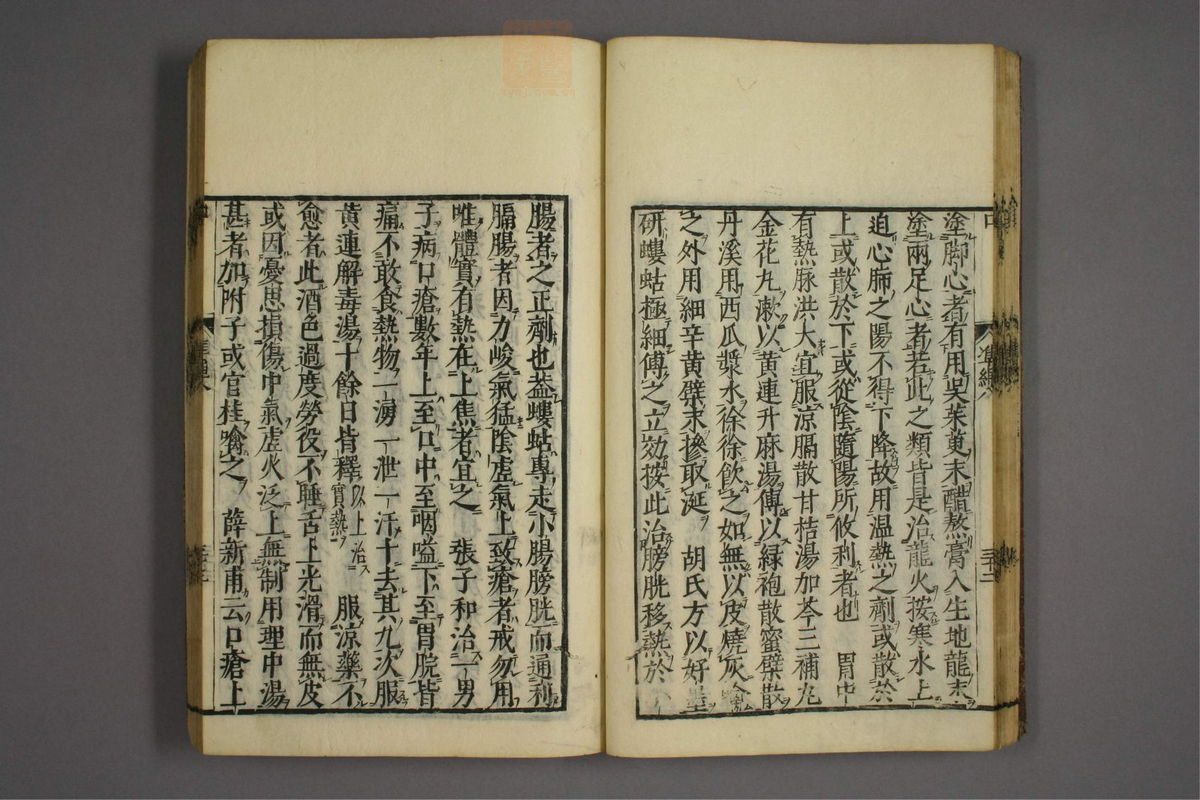 塗脚心者有用吳茱萸末醋熬膏入生地龍末
塗兩足心者若此之類皆是治龍火按寒水上
迫心肺之陽不得下降故用温熱之劑或散於
上或散於下或從陰隨陽所攸利者也　胃中
有熱脉洪大宜服涼膈散甘桔湯加芩三補丸
金花丸漱以黄連升麻湯傅以緑袍散蜜檗散
丹溪用西瓜漿水徐徐飲之如無以皮燒灰噙
之外用細辛黄檗末摻取涎　胡氏方以好墨
研螻蛄極細傅之立効按此治膀胱移熱於小
腸者之正劑也葢螻蛄專走小腸膀胱而通利
膈腸者因力峻氣猛陰虛氣上致瘡者戒勿用
唯體實有熱在上焦者宜之　張子和治一男
子病口瘡數年上至口中至咽嗌下至胃脘皆
痛不敢食熱物一湧一泄一汗十去其九次服
黄連解毒湯十餘日皆釋以上治實熱　服涼藥不
愈者此酒色過度勞役不睡舌上光滑而無皮
或因憂思損傷中氣虛火泛上無制用理中湯
甚者加附子或官桂噙之　薛新甫云口瘡上